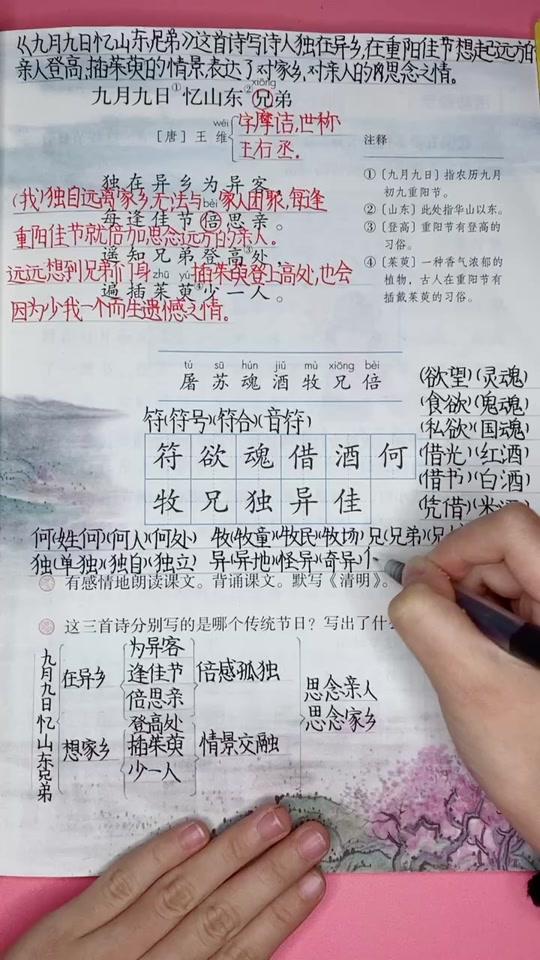 《九月九日忆山东兄弟》这首诗写诗人独在异乡,在重阳佳节想起远方的
亲人登高,插茱萸的情景,表达了对家乡,对亲人的思念之情。
xiōng
九月九日①忆山东②兄弟
wéi
[唐] 王 维
字摩诘,世称
王右丞。
独在异乡为异客,
(我)独自远离家乡,无法与家人团聚,每逢
bèi
每逢佳节倍思亲。
重阳佳节就倍加思念远方的亲人。
遥知兄弟登高③处,
远远想到兄弟们身 插茱萸登上高处,也会
zhū yú
遍插茱萸④少一人。
因为少我一个而生遗憾之情。
注释
①〔九月九日〕指农历九月
初九重阳节。
②〔山东〕此处指华山以东。
③〔登高〕重阳节有登高的
习俗。
④〔茱萸〕一种香气浓郁的
植物,古人在重阳节有
插戴茱萸的习俗。
tú sū hún jiǔ mù xiōng bèi
屠 苏 魂 酒 牧 兄 倍
符(符号)(符合)(音符)
符 欲 魂 借 酒 何
牧 兄 独 异 佳
(欲望)(灵魂)
(食欲)(鬼魂)
(私欲)(国魂)
(借光)(红酒)
(借书)(白酒)
(凭借)(米
何(姓何)(何人)(何处) 牧(牧童)(牧民)(牧场) 兄(兄弟)(兄
独(单独)(独自)(独立) 异(异地)(怪异)(奇异)
有感情地朗读课文。背诵课文。默写《清明》。
这三首诗分别写的是哪个传统节日?写出了什
九月九日忆山东兄弟
在异乡
为异客
逢佳节
倍思亲
倍感孤独
想家乡
登高处
插茱萸
少一人
情景交融
思念亲人
思念家乡